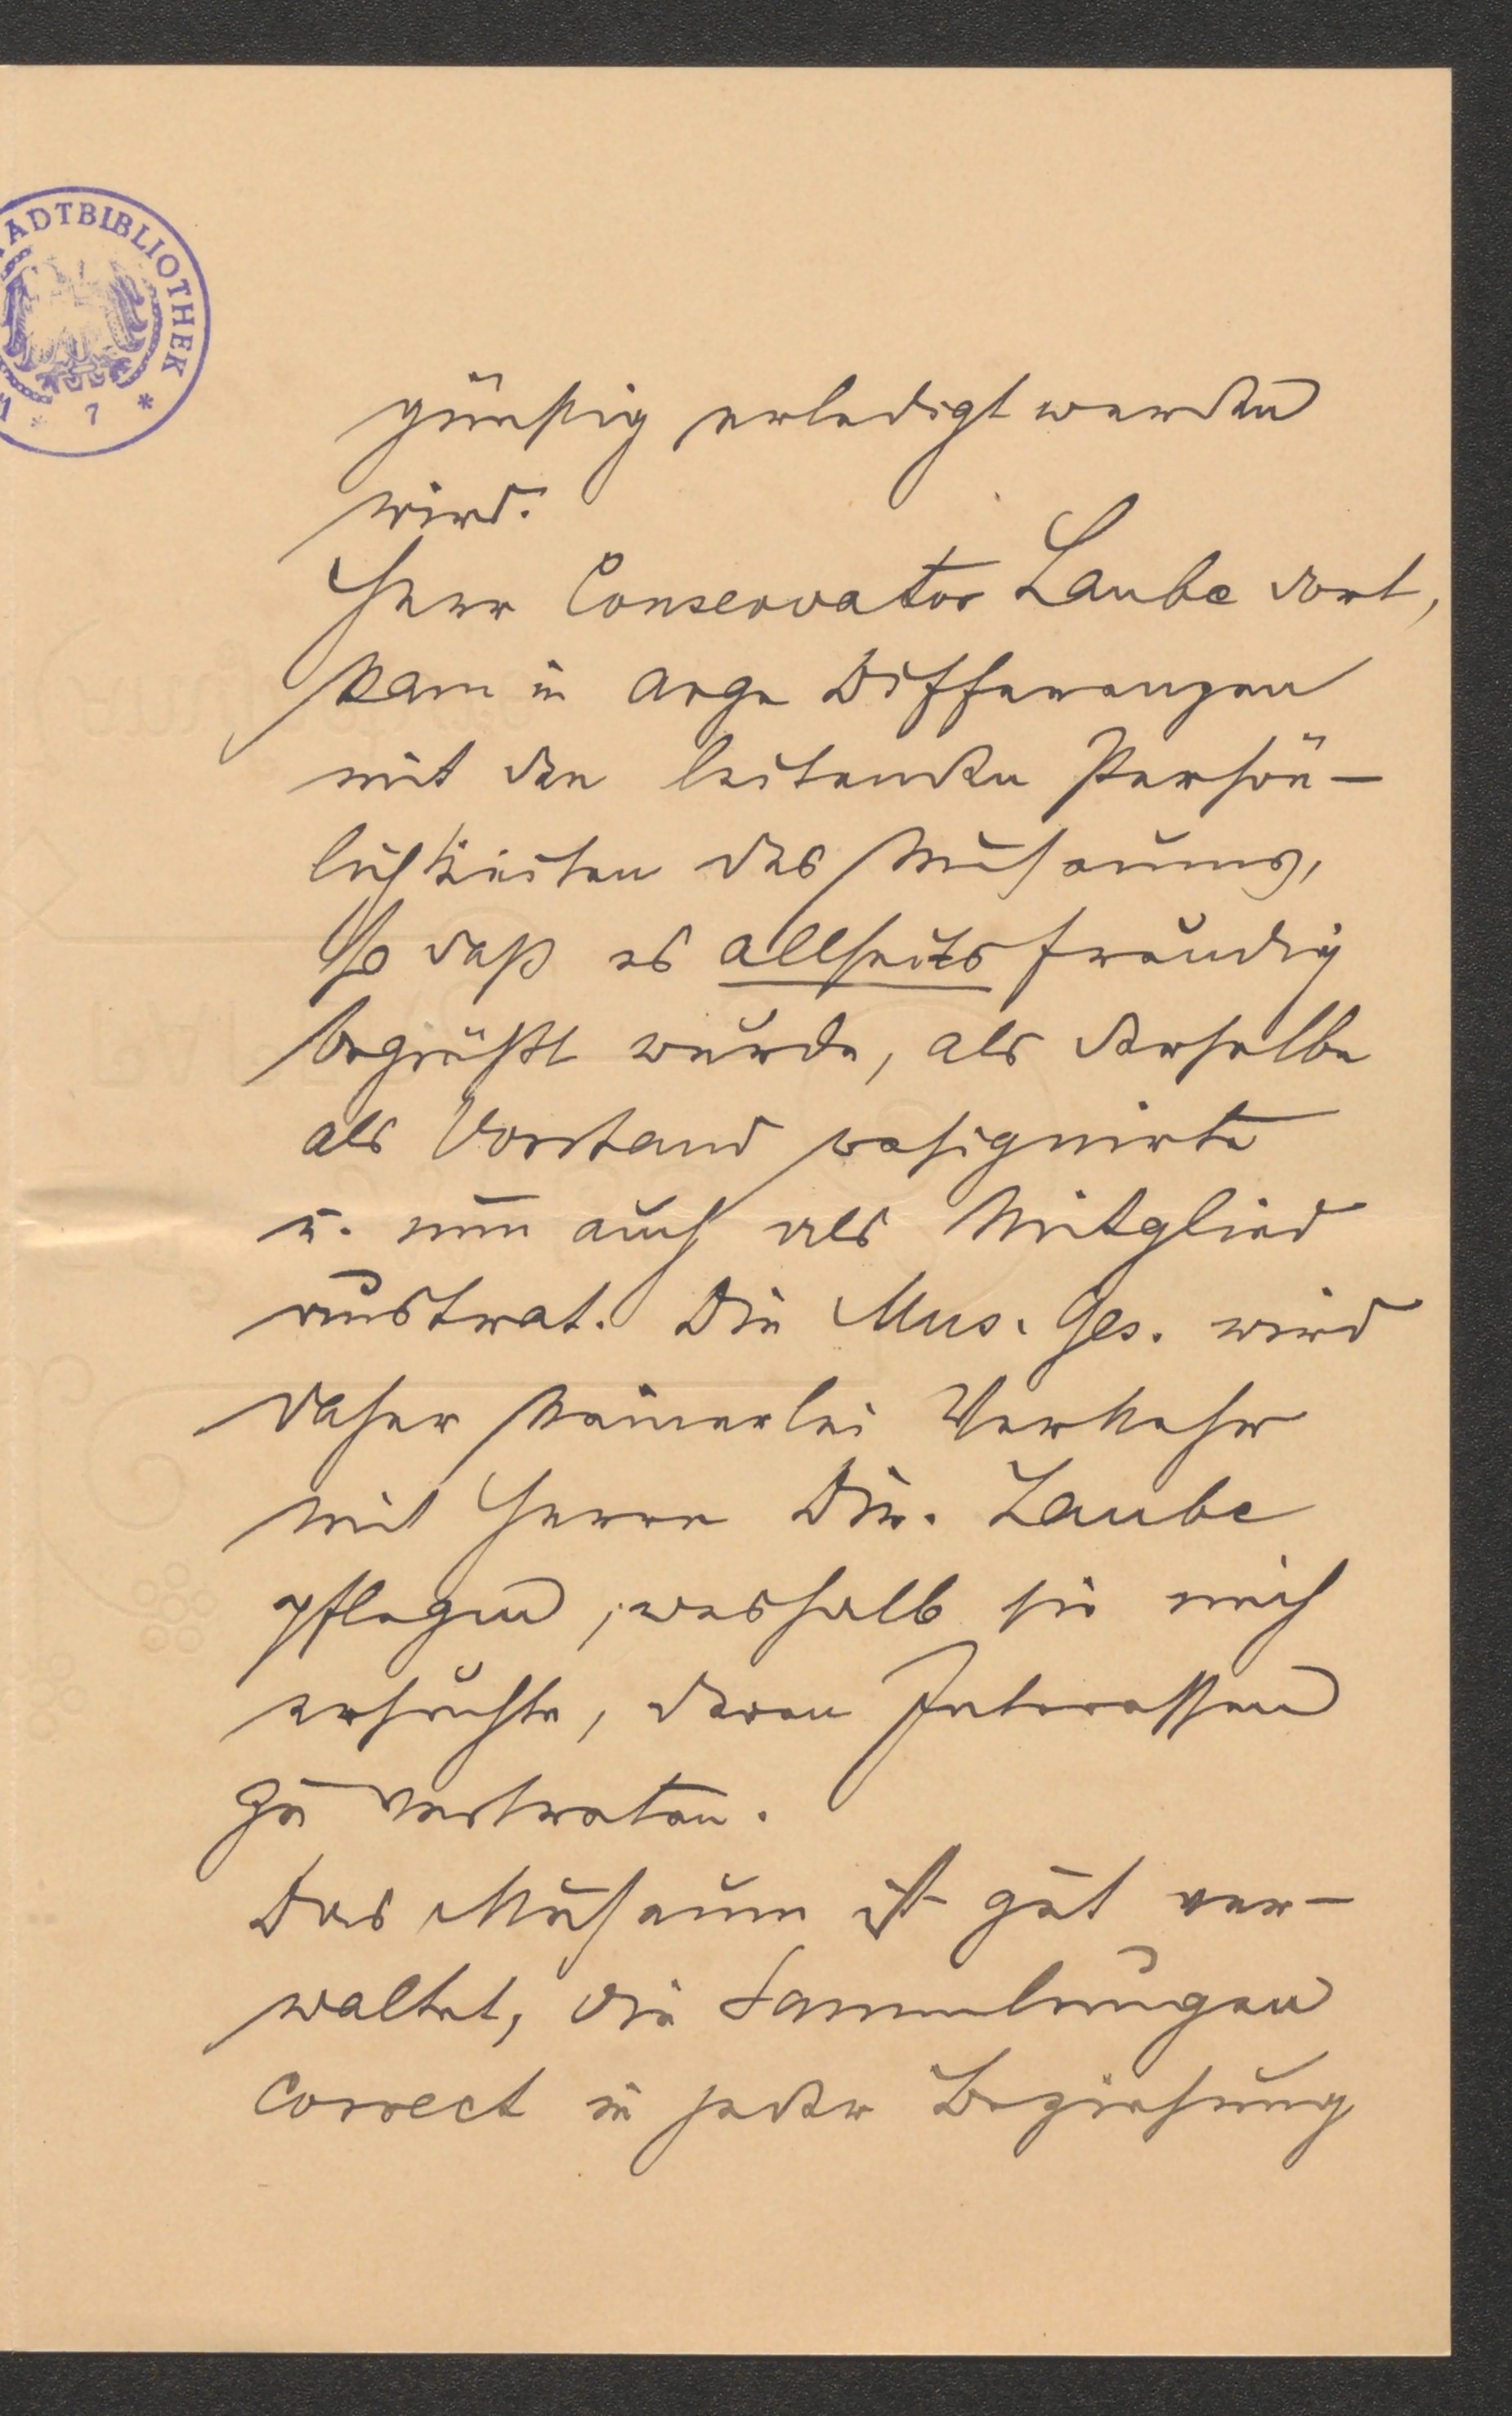 ADTBIBLIOTHEK
* 7 *
günstig erledigt werden
wird.
Herr Conservator Laube dort,
kam in arge Differenzen
mit den leitenden Persön-
lichkeiten des Museums,
so daß es allseits freudig
begrüßt wurde, als derselbe
als Vorstand resignirte
u. nun auch als Mitglied
austrat. Die Mus. Ges. wird
daher keinerlei Verkehr
mit Herrn Dir. Laube
pflegen, weshalb sie mich
ersuchte, deren Interessen
zu vertreten.
Das Museum ist gut ver-
waltet, die Sammlungen
correct in jeder Beziehung